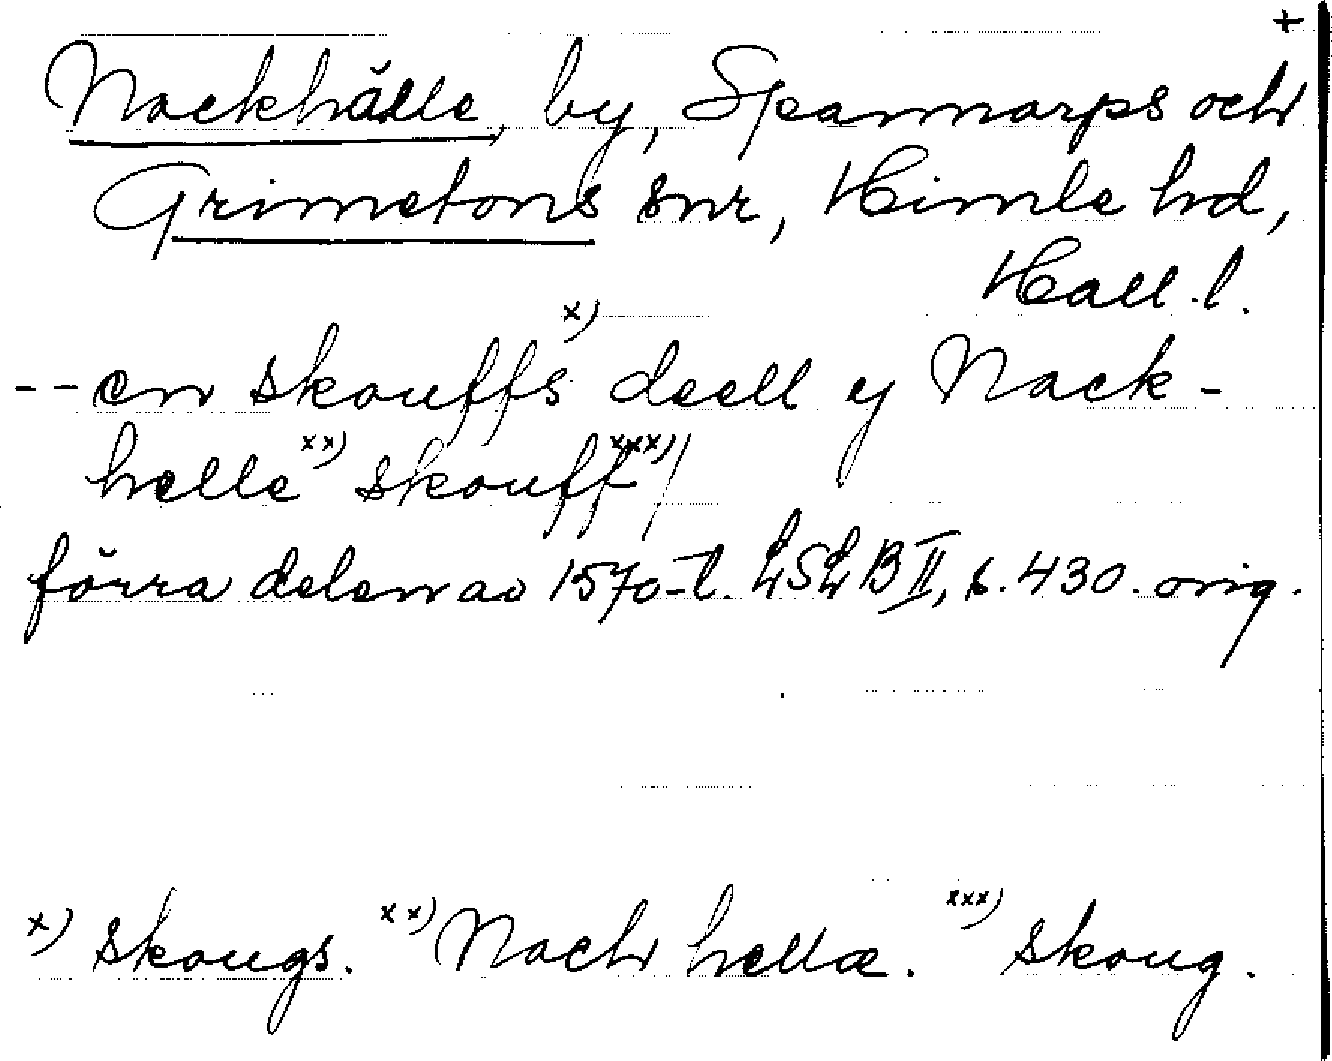 +
Nackhälle, by, Spannarps och
Grimetons snr, Himle hd,
Hall. l.
-- en skouffs x) deell y Nack-
helle xx) skouff xxx) /
förra delen av 1570-t. LSLB II, s. 430. orig.
x) skougs. xx) Nach hellæ. xxx) skoug.